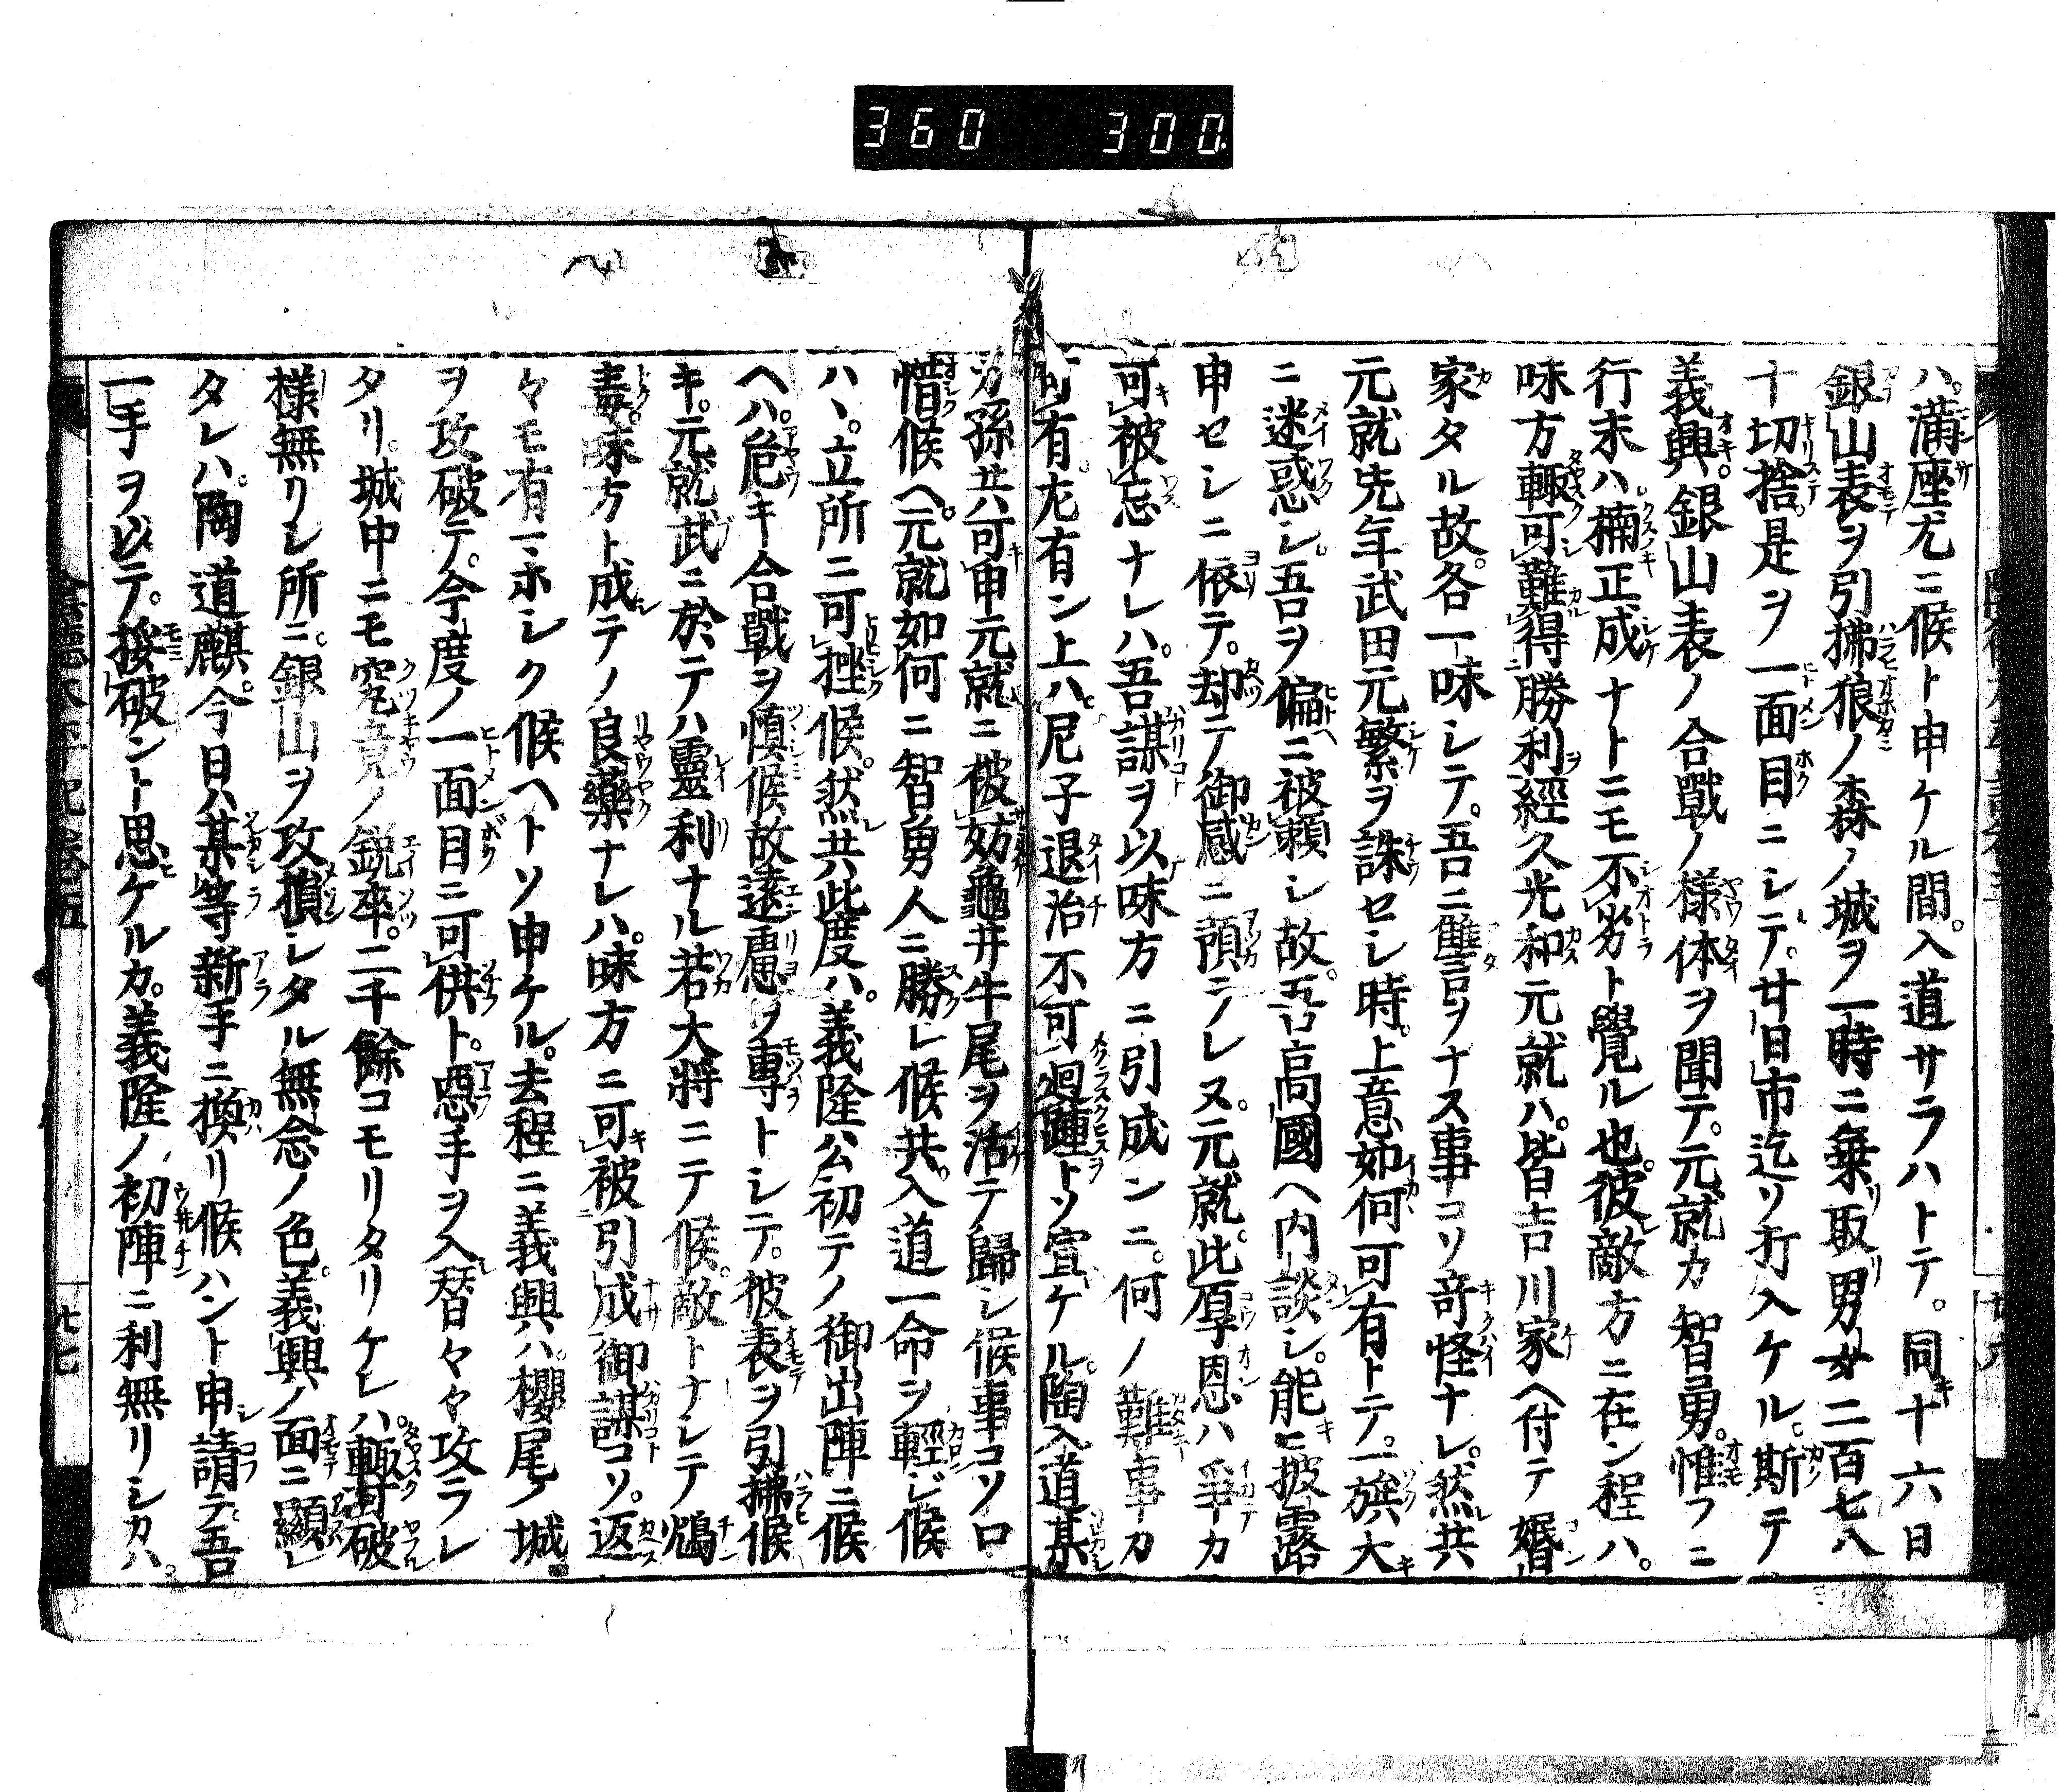 360 300
ハ。満座尤ニ候ト申ケル間。入道サラハトテ。同十六日
銀山表ヲ引拂狼ノ森ノ城ヲ一時ニ乗取男女二百七八
十切捨。是ヲ一面目ニシテ。廿日市迄ソ打入ケル斯テ
義興。銀山表ノ合戰ノ様体ヲ聞テ。元就カ智勇。惟フニ
行末ハ楠正成ナトニモ不劣ト覺ル也。彼敵方ニ在ン程ハ。
味方輙可難得勝利經久光和元就ハ。皆吉川家ヘ付テ婚
家タル故。各一味シテ。吾ニ讎ヲナス事コソ竒怪ナレ。然共
元就先年武田元繁ヲ誅セシ時。上意如何可有トテ。一旗大
ニ迷惑シ。吾ヲ偏ニ被頼シ故。吾高國ヘ内談シ。能ニ披露
申セシニ依テ。却テ御感ニ預ラレヌ。元就。此厚恩ハ爭カ
可被忘ナレハ。吾謀ヲ以味方ニ引成ンニ。何ノ難事カ
可有。左有ン上ハ尼子退治不可廻踵トソ宣ケル。陶入道某
カ孫共可申元就ニ被妨龜井牛尾ヲ活テ歸シ候事コソ口
惜候ヘ。元就如何ニ智勇人ニ勝レ候共。入道一命ヲ輕シ候
ハヽ。立所ニ可挫候。然共此度ハ。義隆公初テノ御出陣ニ候
ヘハ。危キ合戰ヲ慎候故遠慮ヲ專トシテ。彼表ヲ引拂候
キ。元就武ニ於テハ靈利ナル若大將ニテ候。敵トナシテ鴆
毒。味方ト成テノ良藥ナレハ。味方ニ可被引成御謀コソ。返
々モ有ホシク候ヘトソ申ケル。去程ニ義興ハ。櫻尾ノ城
ヲ攻破テ。今度ノ一面目ニ可供ト。惡手ヲ入替々々攻ラレ
タリ。城中ニモ究竟ノ鋭卒。二千餘コモリタリケレハ。輙可破
様無リシ所ニ。銀山ヲ攻損シタル無念ノ色。義興ノ面ニ顯レ
タレハ。陶道麒。今日ハ某等新手ニ換リ候ハント申請テ。吾
一手ヲ以テ。揉破ント思ケルカ。義隆ノ初陣ニ利無リシカハ。